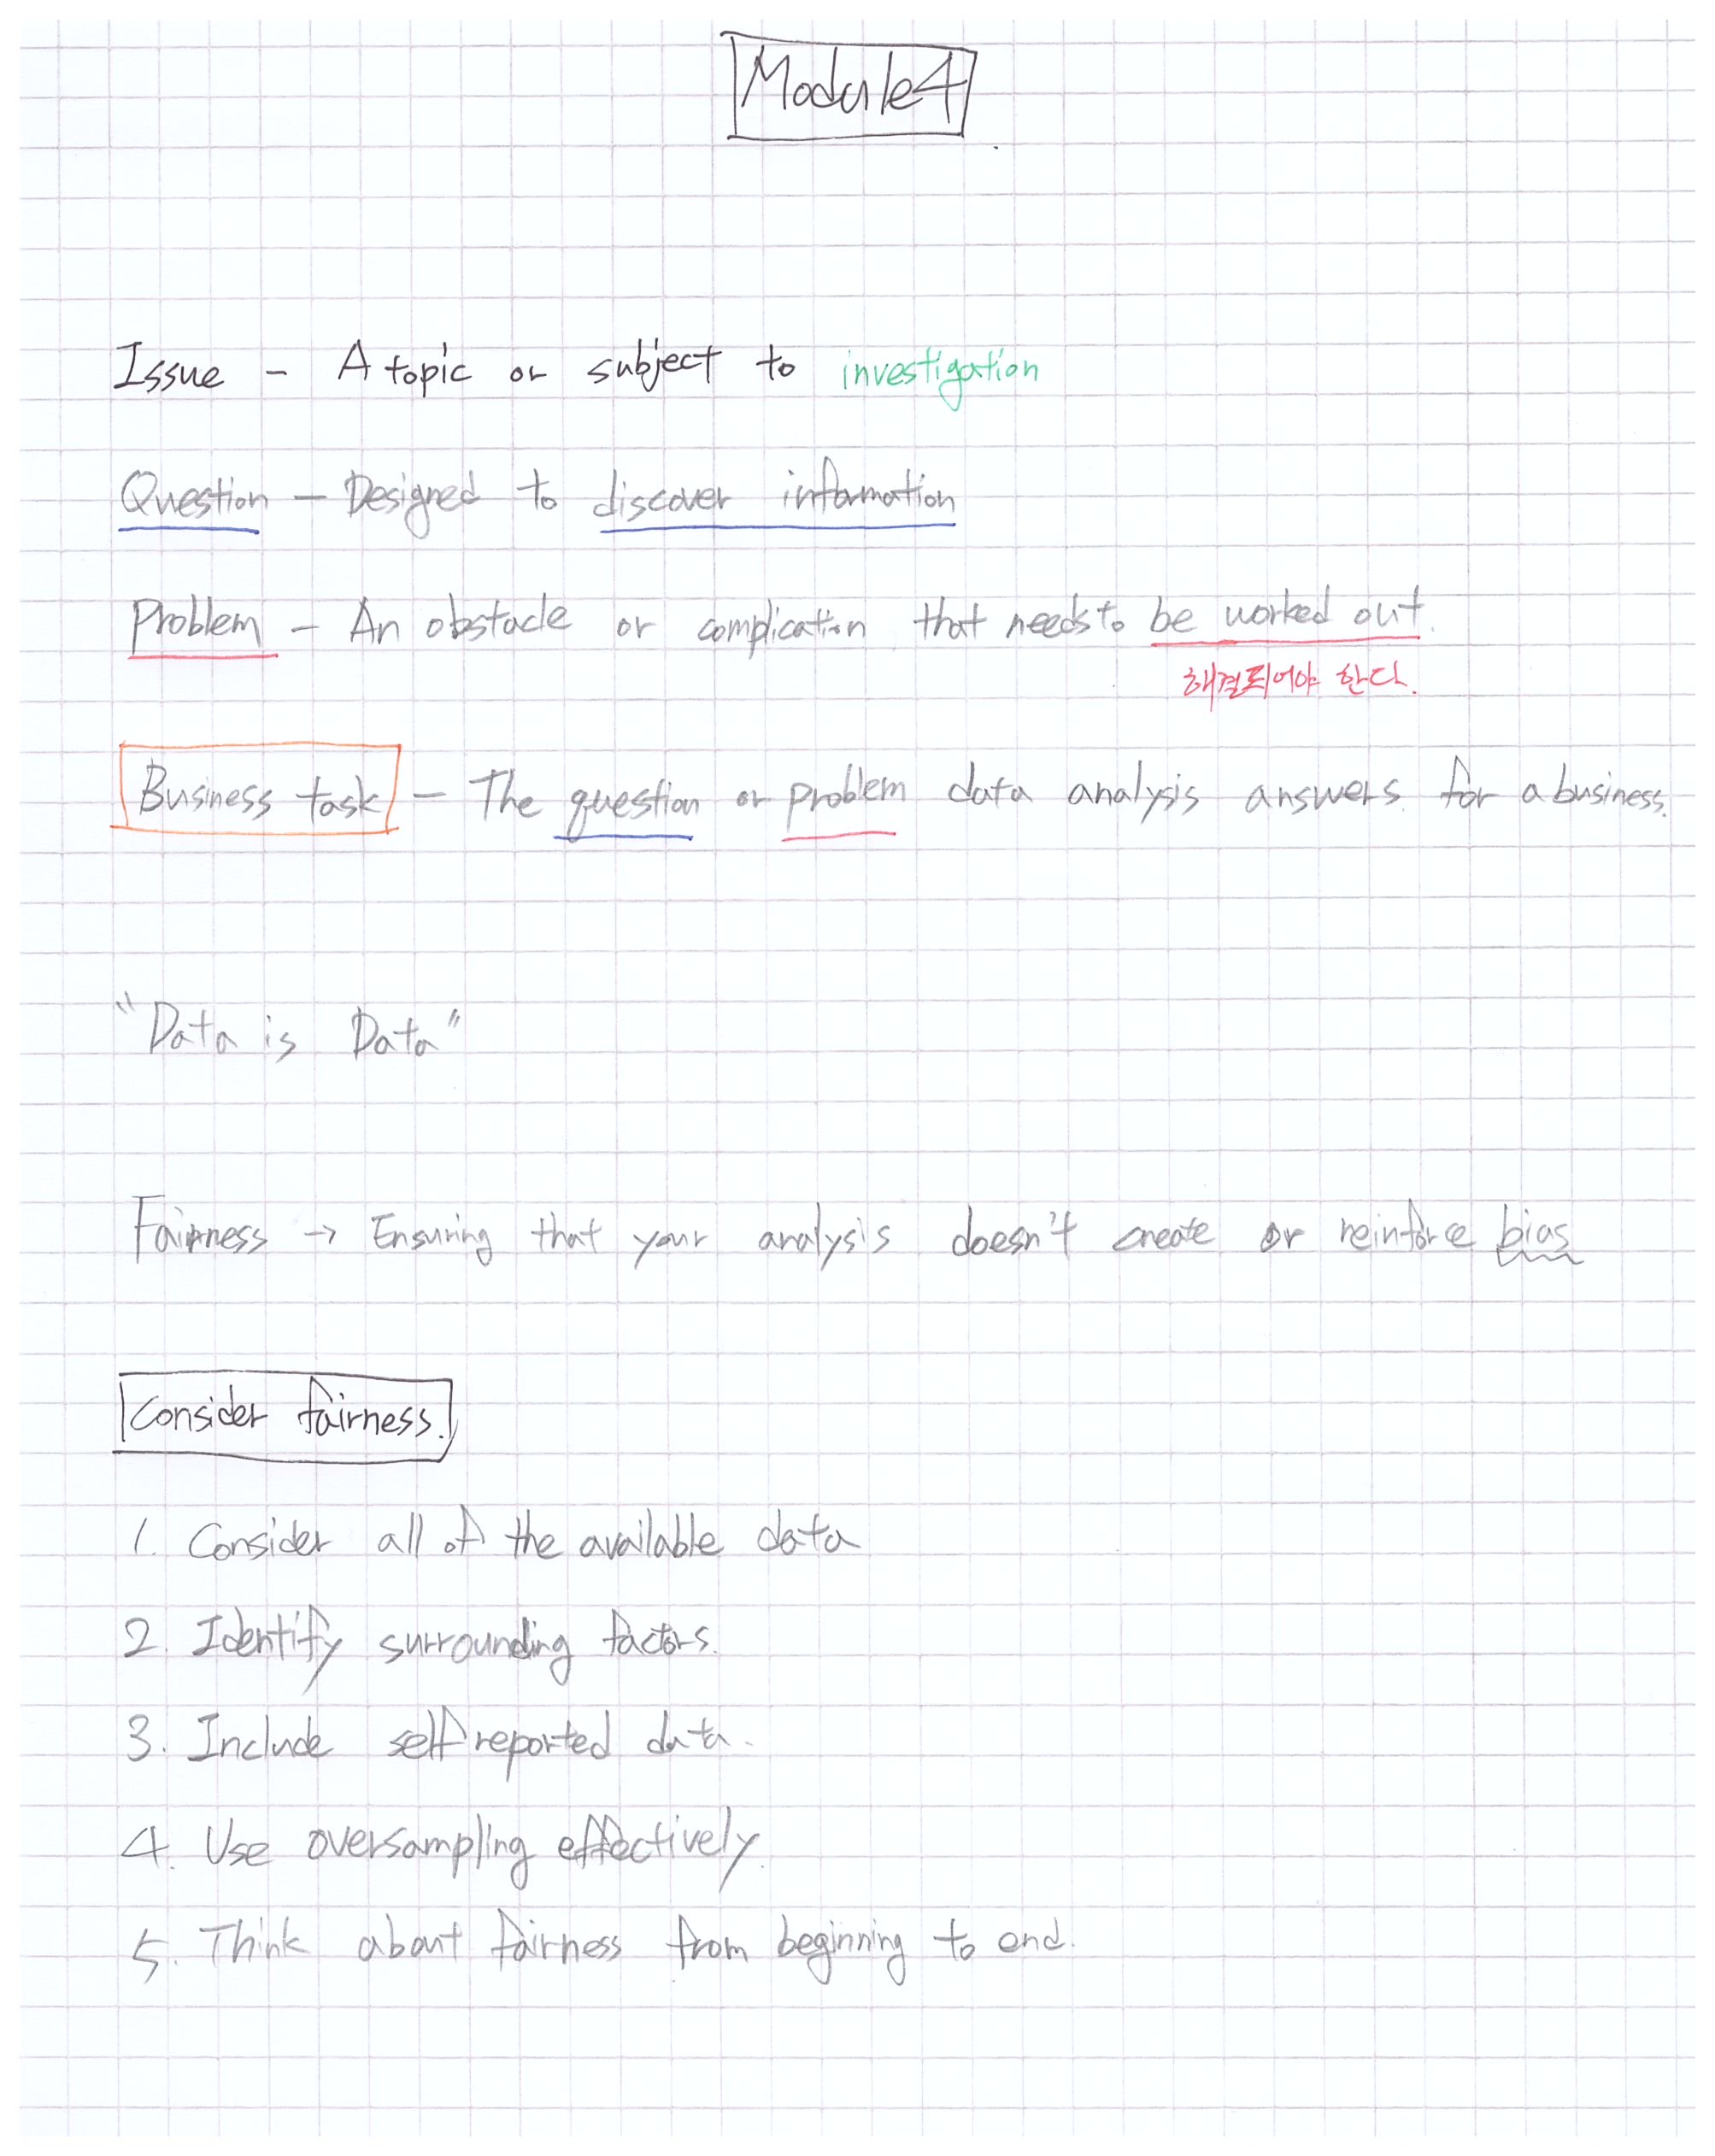 Module4
Issue - A topic or subject to investigation
Question - Designed to discover information
Problem - An obstacle or complication that needs to be worked out.
해결되어야 한다.
Business task - The question or problem data analysis answers for a business.
"Data is Data"
Fairness → Ensuring that your analysis doesn't create or reinforce bias
Consider fairness.
1. Consider all of the available data
2. Identify surrounding factors.
3. Include self reported data.
4. Use oversampling effectively.
5. Think about fairness from beginning to end.